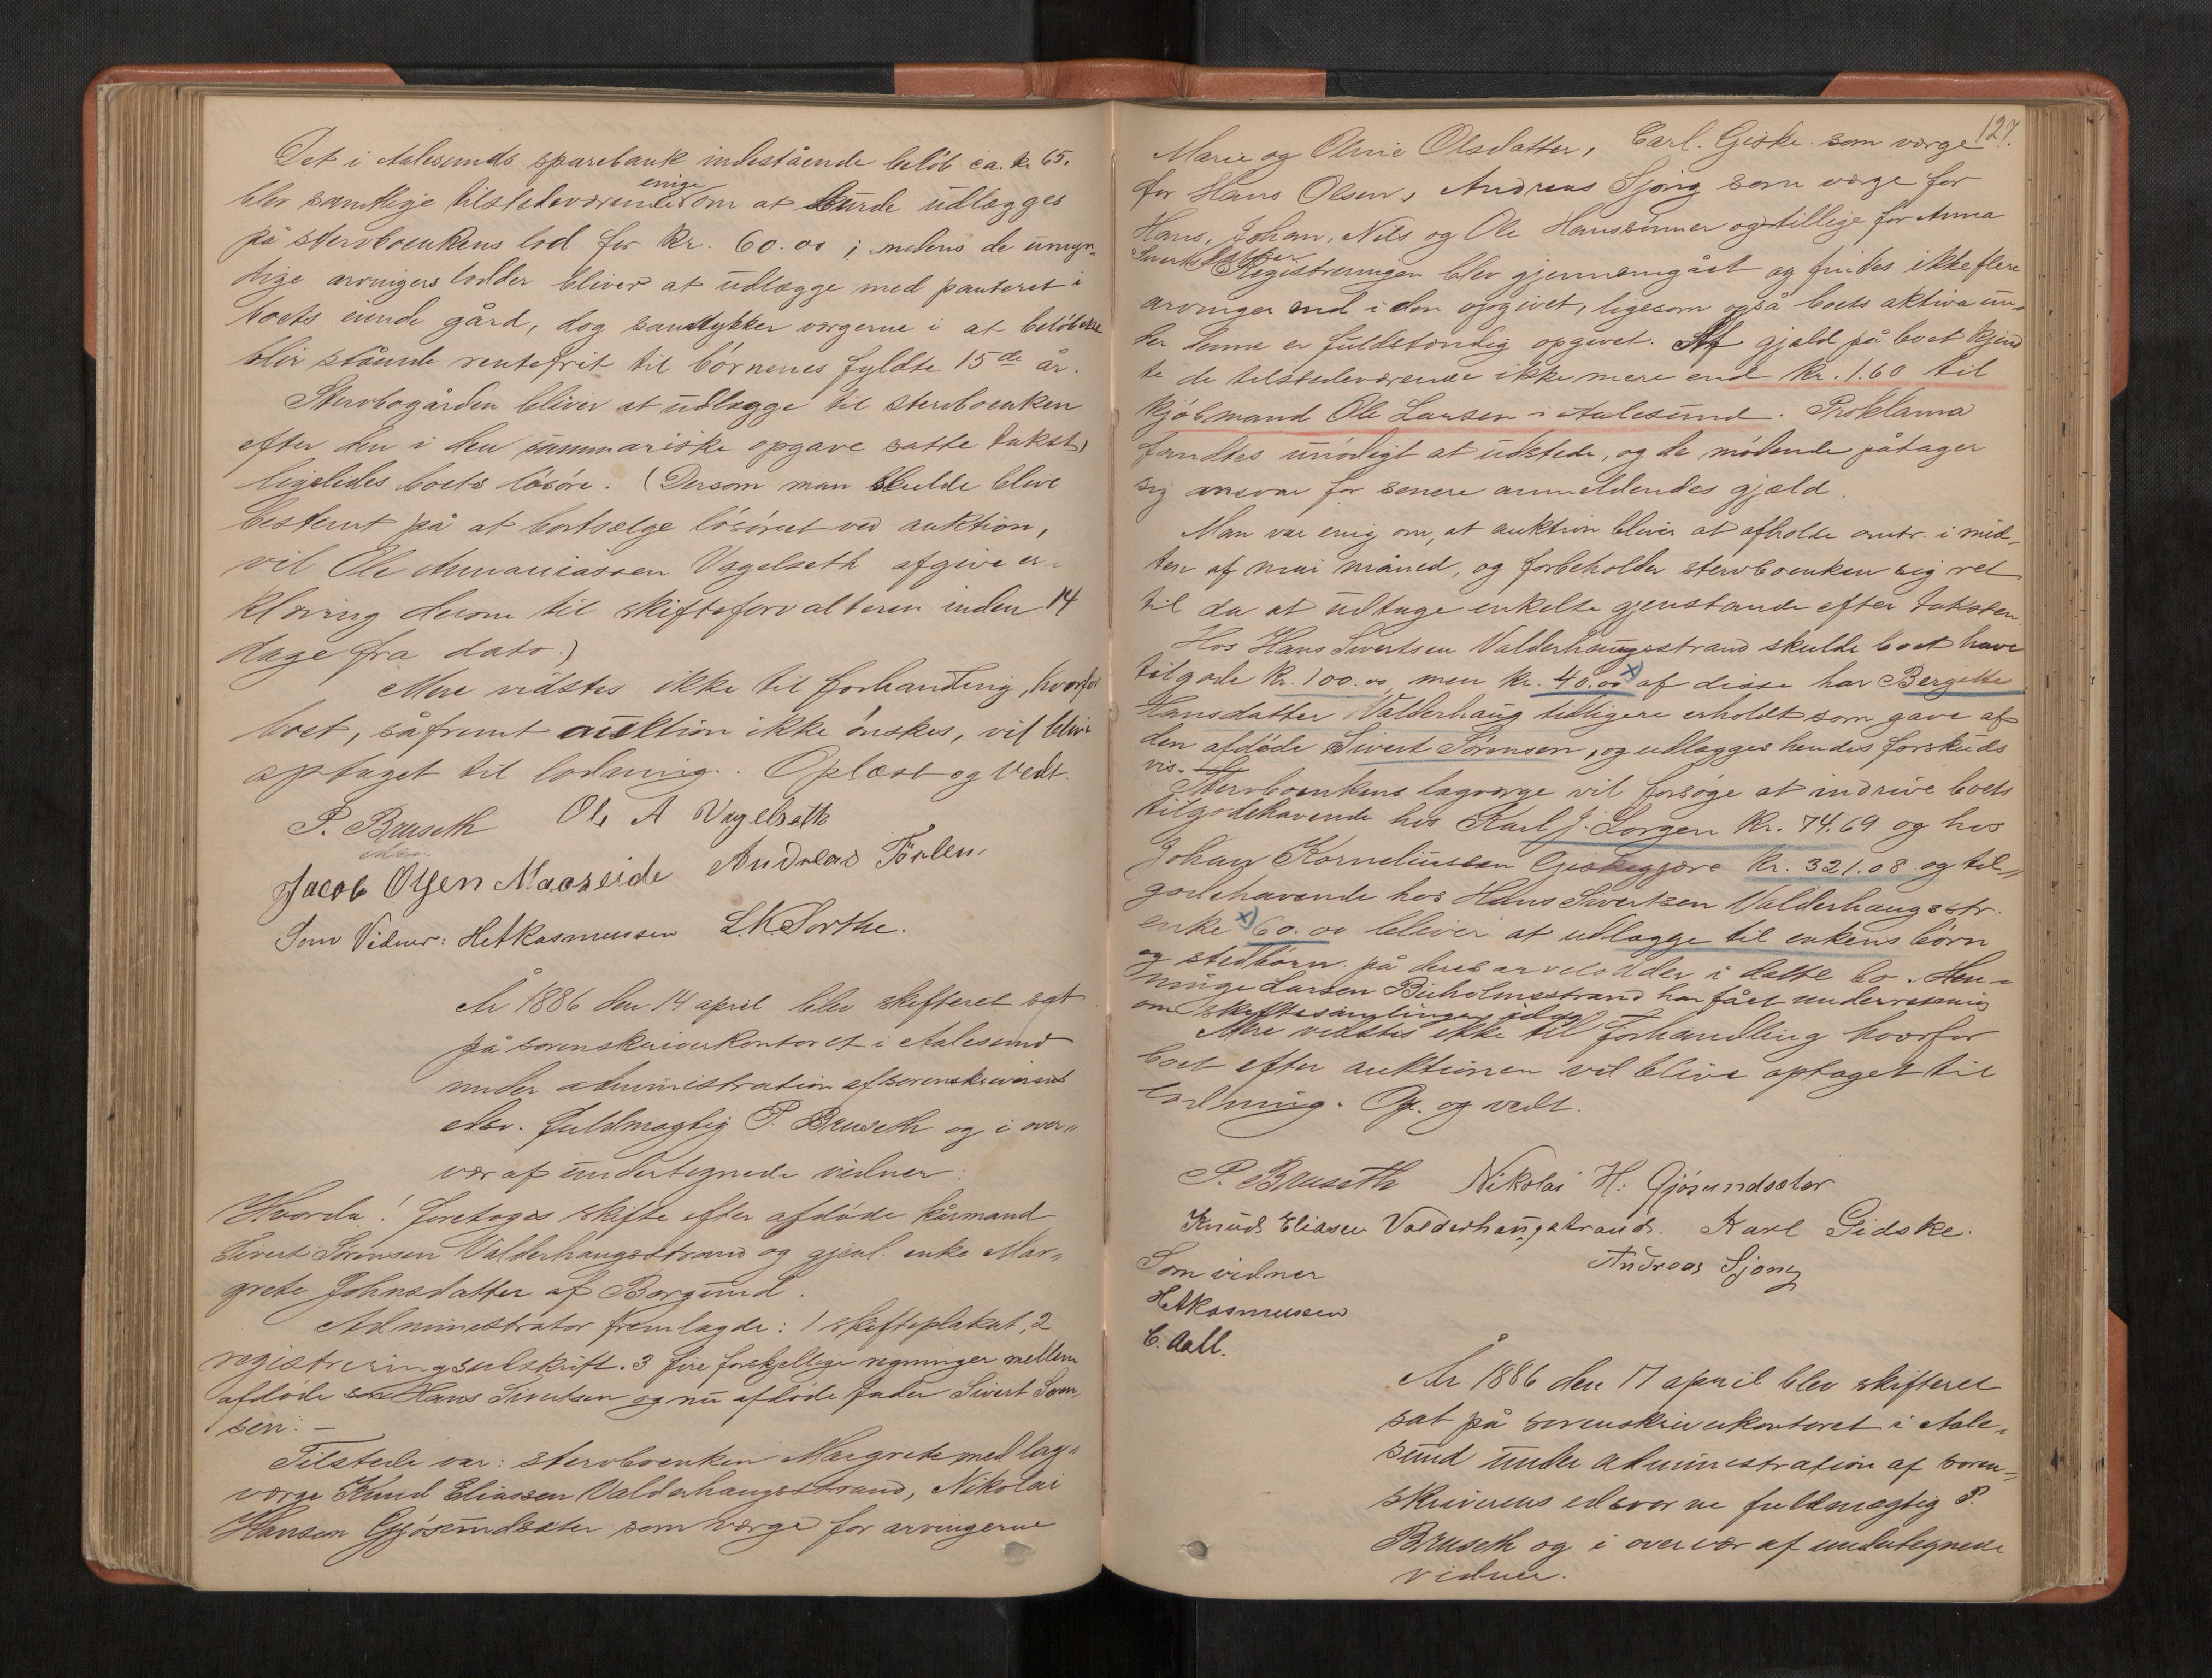 Det i Aalesunds sparebank indestående beløb ca. kr 65.
blev samtlige tilstedeværende enige om at burde udlægges
på stervboenkens lod for kr. 60.00; medens de umyn-
dige arvingers lodder bliver at udlægge med panteret i
boets eiende gård, dog samtykker værgerne i at beløbene
blir stående rentefrit til børnenes fyldte 15de år.
Stervbogården bliver at udlægge til stervboenken
efter den i den summariske opgave satte takst,
ligeledes boets løsøre. (Dersom man skulde blive
bestemt på at bortsælge løsøret ved auktion,
vil Ole Annaniassen Vagelseth afgive er-
klæring derom til skifteforvalteren inden 14
dage fra dato.)
Mere vidstes ikke til forhandling, hvorfor
boet, såfremt auktion ikke ønskes, vil blive
optaget til lodning. Oplæst og vedt.
P. Bruseth Ole A Vagelseth
Jacob Olsen Maaseide Andreas
Som Vidner: H.A Rasmussen L.K. Sorthe.
År 1886 den 14 april blev skifteret sat
på sorenskriverkontoret i Aalesund
under administration af sorenskriverens
edsv. fuldmægtig P. Bruseth og i over-
vær af undertegnede vidner:
Hvorda! foretoges skifte efter afdøde kårmand
Sivert Sørensen Valderhaugsstrand og gjenl. enke Mar-
grete Johnsdatter af Borgund.
Administrator fremlagde: 1 skifteplakat, 2
registreringsudskrift. 3 fire forskjellige regninger mellem
afdøde søn Hans Sivertsen og nu afdøde fader Sivert Søren-
sen: -
Tilstede var: stervboenken Margrete med lag-
værge Knud Eliassen Valderhaugsstrand, Nikolai
Hansen Gjøsundsæter som værge for arvingerne
127.
Marie og Oline Olsdatter, Carl. Giske som værge
for Hans Olsen, Andreas Sjong som værge for
Hans, Johan, Nils og Ole Hanssønner og tillige for Anna
Sivertsdatter
Registreringen blev gjennemgået og findes ikke flere
arvinger end i den opgivet, ligesom også boets aktiva un-
der denne er fuldstændig opgivet. Af gjæld på boet kjend
te de tilstedeværende ikke mere end kr. 1.60 til
kjøbmand Ole Larsen i Aalesund. Proklama
fandtes unødigt at udstede, og de mødende påtager
sig ansvar for senere anmeldendes gjæld.
Man var enig om, at auktion bliver at afholde omtr. i mid-
ten af mai måned, og forbeholder stervboenken sig ret
til da at udtage enkelte gjenstande efter taksten.
Hos Hans Sivertsen Valderhaugsstrand skulde boet have
tilgode kr. 100.00, men kr. 40.00 x) af disse har Bergitte
Hansdatter Valderhaug tilligere erholdt som gave af
den afdøde Sivert Sørensen, og udlægges hendes forskuds
vis.
Stervboenkens lagværge vil forsøge at inddrive boets
tilgodehavende hos Karl J. Sorgen kr. 74.69 og hos
Johan Korneliussen Giskegjære kr. 321.08 og til-
godehavende hos Hans Sivertsen Valderhaugsstr.
enke x) 60.00 bliver at udlægge til enkens børn
og stedbørn på deres arvelodder i dette bo. Hen-
ninge Larsen Buholmsstrand har fået underretning
om skiftesamlingen idag
Mere vidstes ikke til forhandling hvorfor
boet efter auktionen vil blive optaget til
lodning. Op. og vedt.
P. Bruseth Nikolai H: Gjøsundsæter
Knud Eliasen Valderhaugstrand. Karl Gidske.
Som vidner Andreas Sjong
H.A Rasmussen
C. Aall.
År 1886 den 17 april blev skifteret
sat på sorenskriverkontoret i Aale-
sund under administration af soren-
skriverens edsvorne fuldmægtig P.
Bruseth og i overvær af undertegnede
vidner.